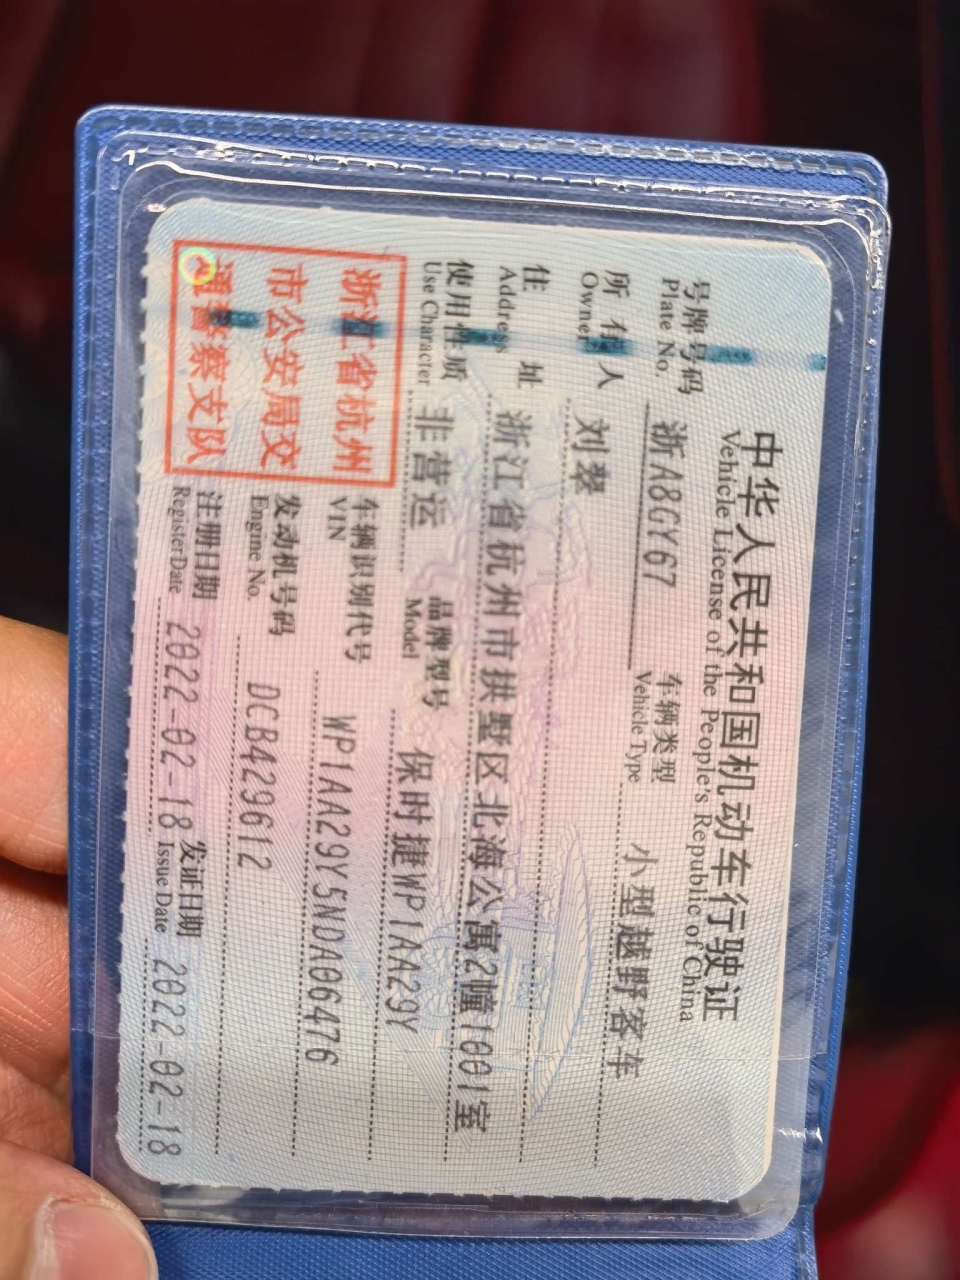 中华人民共和国机动车行驶证
Vehicle License of the People's Republic of China
号牌号码 浙A8GY67 车辆类型 小型越野客车
Plate No. Vehicle Type
所有人 刘翠
Owner
住址 浙江省杭州市拱墅区北海公寓2幢1001室
Address
使用性质 非营运 品牌型号 保时捷WP1AA29Y
Use Character Model
浙江省杭州
市公安局交
通警察支队
车辆识别代号 WP1AA29Y5NDA06476
VIN
发动机号码 DCB429612
Engine No.
注册日期 2022-02-18 发证日期 2022-02-18
Register Date Issue Date